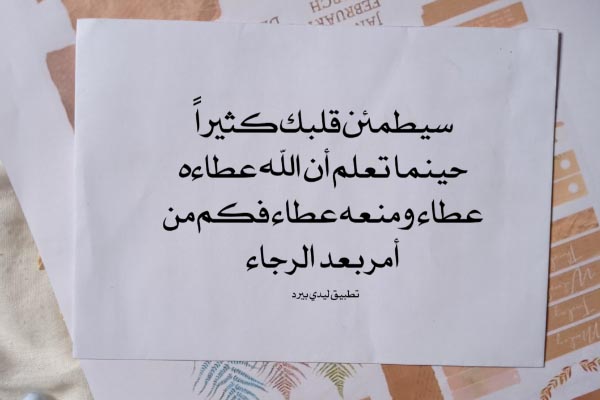 JAN
FEBRUARY
سيطمئن قلبك كثيراً
حينما تعلم أن الله عطاءه
عطاء ومنعه عطاء فكم من
أمر بعد الرجاء
تطبيق ليدي بيرد